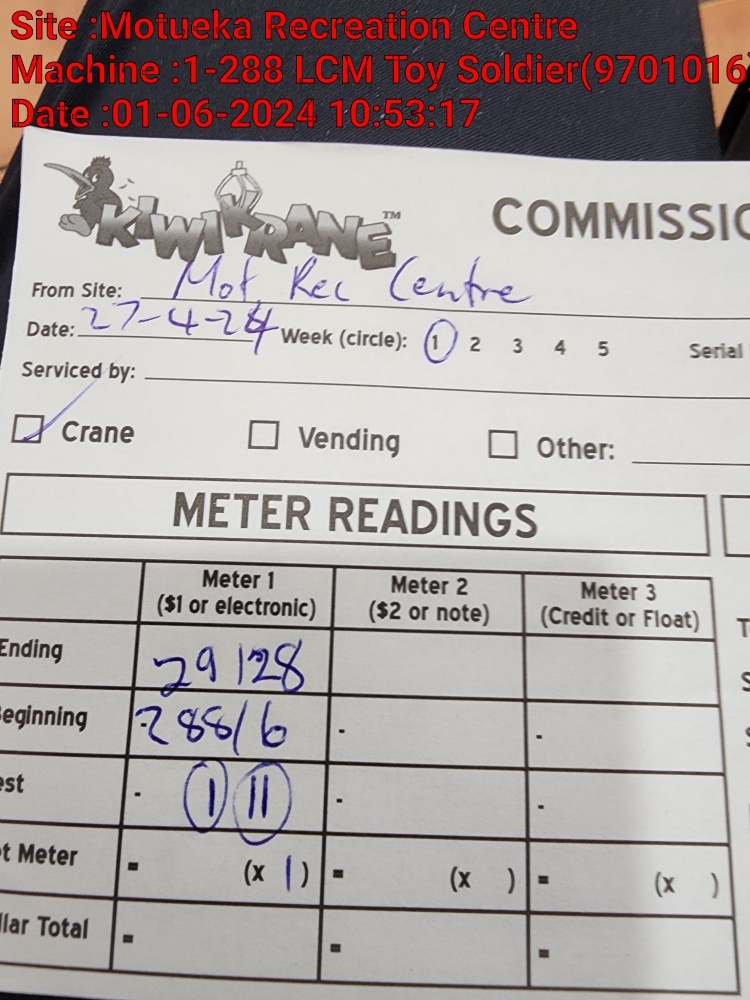 Site :Motueka Recreation Centre
Machine :1-288 LCM Toy Soldier(9701016)
Date :01-06-2024 10:53:17
KIWIKRANE™
COMMISSIO
From Site: Mot Rec Centre
Date: 27-4-24 Week (circle): 1 2 3 4 5 Serial
Serviced by:
Crane Vending Other:
METER READINGS
Meter 1 Meter 2 Meter 3
($1 or electronic) ($2 or note) (Credit or Float)
Ending 29128
eginning 28816 - -
est - 1 11 - -
t Meter = (x 1) = (x ) = (x )
llar Total = = =